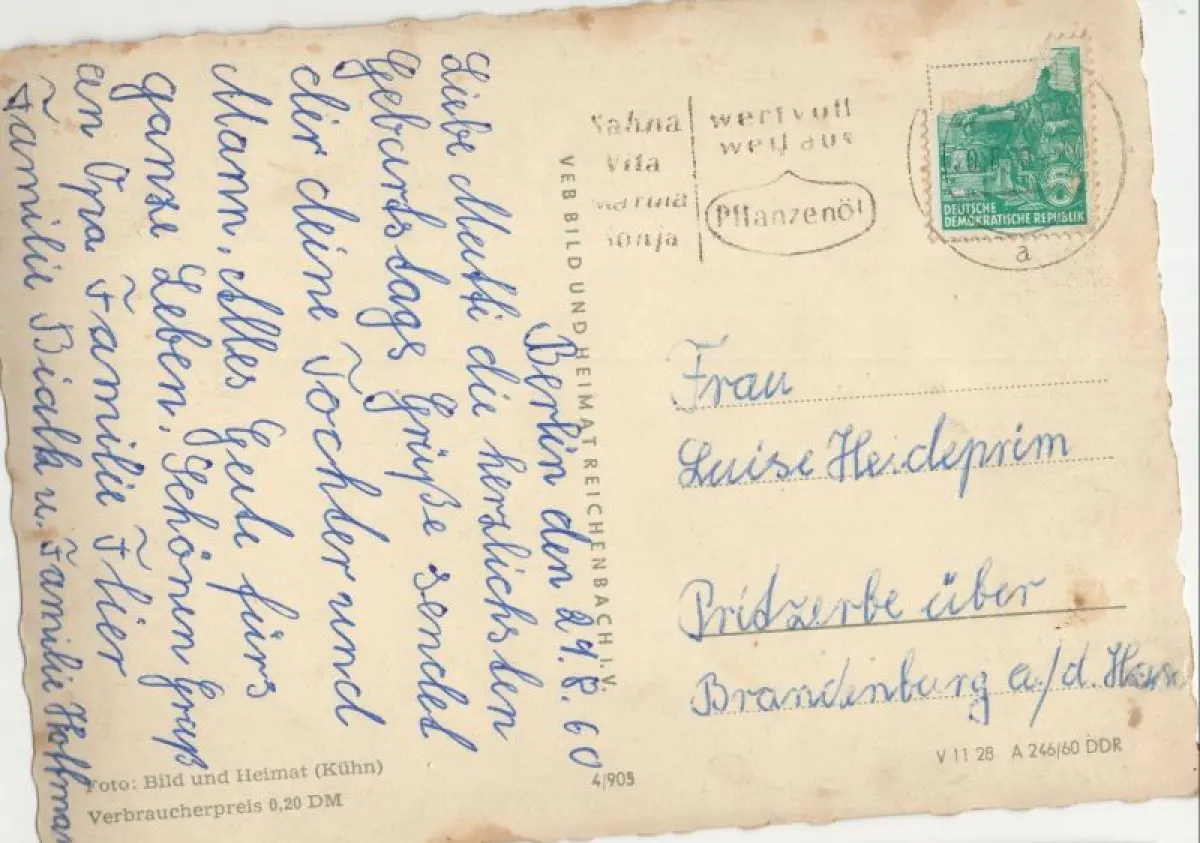 Berlin den 29.8.60
Liebe Mutti die herzlichsten
Geburtstags Grüße sendet
dir deine Tochter und
Mann. Alles Gute fürs
ganze Leben. Schönen Gruß
an Opa Familie Flier
Familie u. Familie Hoffman
Foto: Bild und Heimat (Kühn)
Verbraucherpreis 0,20 DM
VEB BILD UND HEIMAT REICHENBACH I. V.
4/905
Sahna
Vita
Marina
Sonja
wertvoll
weil aus
Pflanzenöl
5
DEUTSCHE
DEMOKRATISCHE REPUBLIK
a
Frau
Luise Heideprim
Pritzerbe über
Brandenburg a./d. Havel
V 11 28 A 246/60 DDR